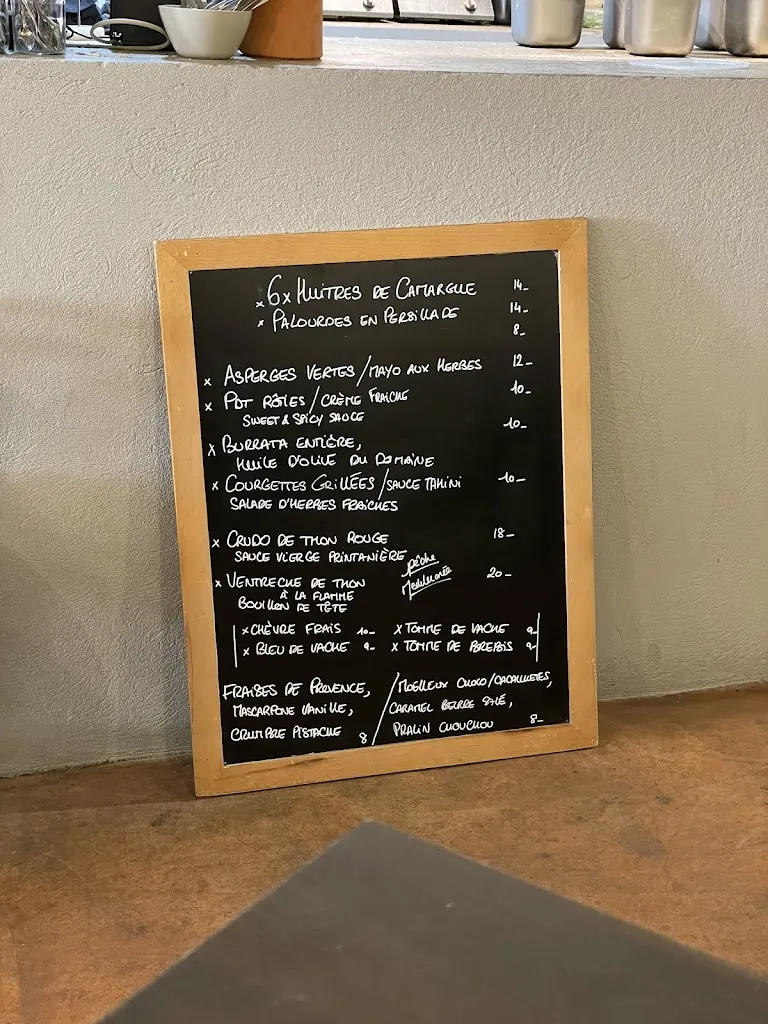 x 6x Huîtres de Camargue 14_
x Palourdes en Persillade 14_
8_
x Asperges Vertes / Mayo aux Herbes 12_
x PDT Rôties / Crème Fraiche 10_
Sweet & Spicy Sauce
x Burrata entière, 10_
Huile d'olive du Domaine
x Courgettes Grillées / Sauce Tahini 10_
Salade d'herbes fraîches
x Crudo de thon rouge 18_
Sauce vierge printanière
pêche
x Ventreche de thon 20_
à la flamme
Bouillon de tête
x Chèvre frais 10_ x Tomme de vache 9_
x Bleu de vache 9_ x Tomme de brebis 9_
Fraises de Provence, / Moelleux choco/cacahuetes,
Mascarpone vanille, Caramel beurre salé,
Crumble pistache 8 Pralin chouchou 8_